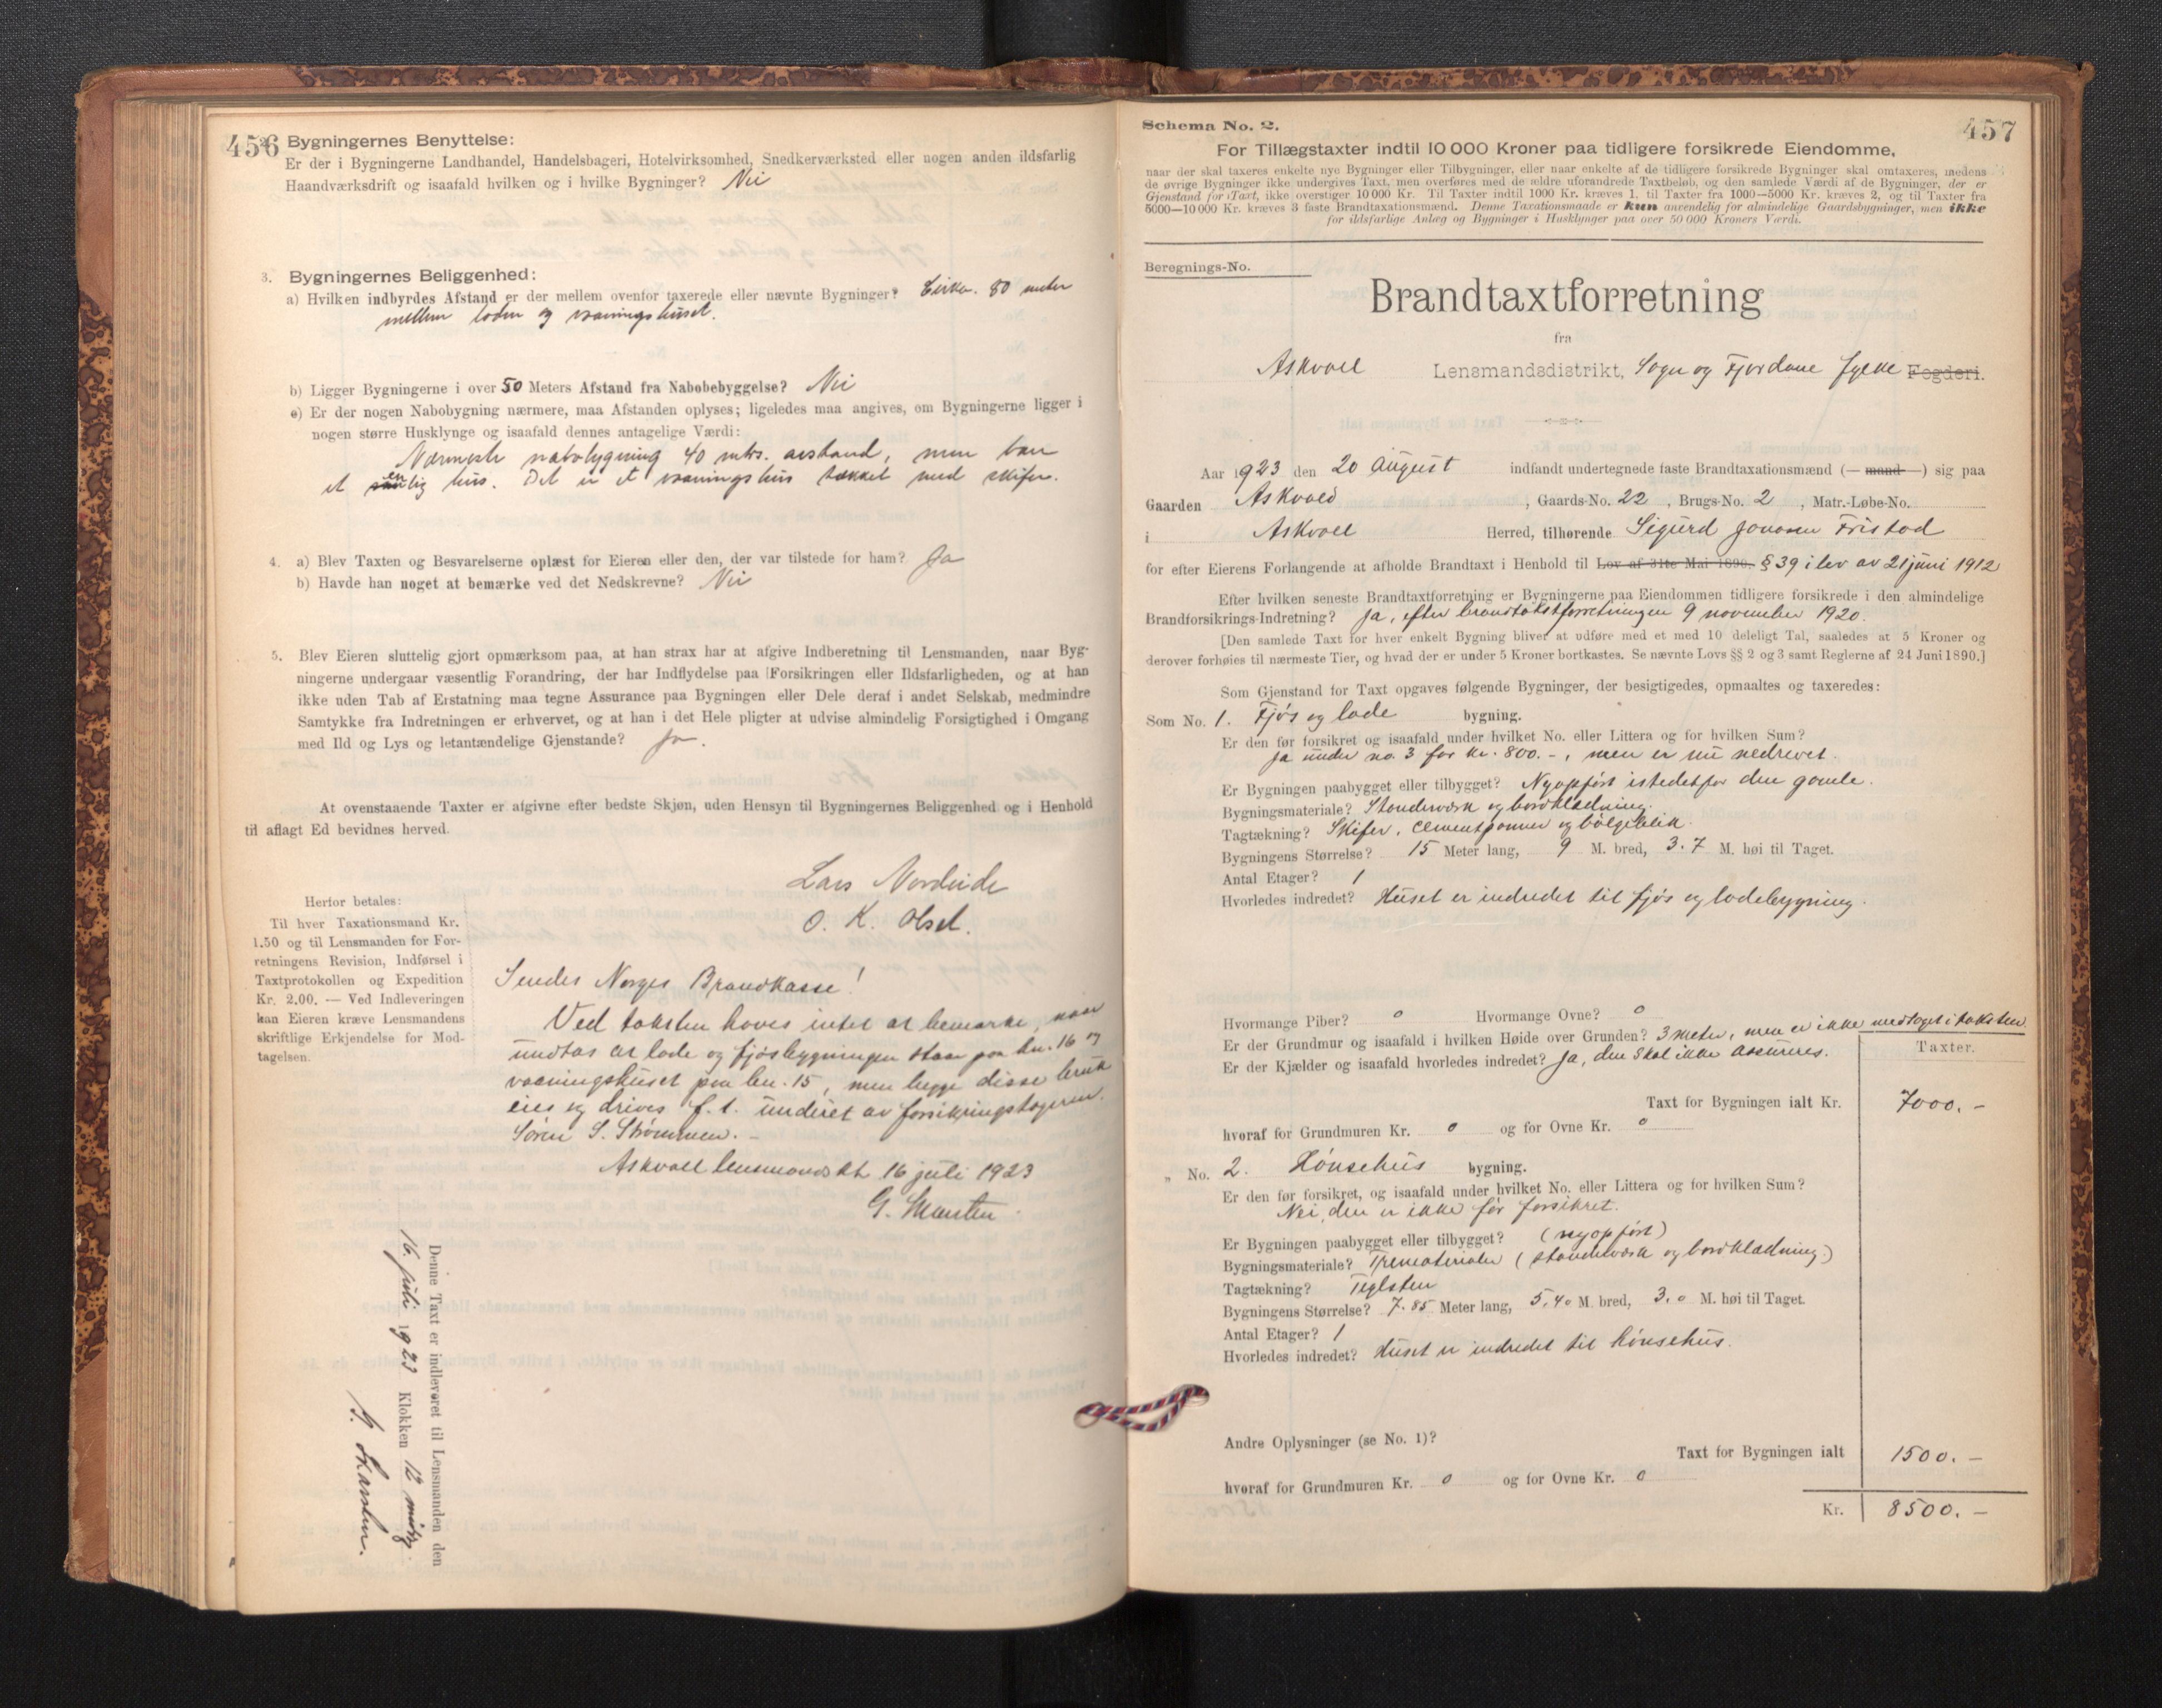 456
Bygningernes Benyttelse:
Er der i Bygningerne Landhandel, Handelsbageri, Hotelvirksomhed, Snedkerværksted eller nogen anden ildsfarlig
Haandværksdrift og isaafald hvilken og i hvilke Bygninger? Nei
3. Bygningernes Beliggenhed:
a) Hvilken indbyrdes Afstand er der mellem ovenfor taxerede eller nævnte Bygninger? Cirka. 80 meter
mellem loden og vaaningshuset.
b) Ligger Bygningerne i over 50 Meters Afstand fra Nabobebyggelse? Nei
c) Er der nogen Nabobygning nærmere, maa Afstanden oplyses; ligeledes maa angives, om Bygningerne ligger i
nogen større Husklynge og isaafald dennes antagelige Værdi:
Nærmeste nabobygning 40 mtrs. avstand, men bare
et enlig hus. Det er et vaaningshus tækket med skifer.
4. a) Blev Taxten og Besvarelserne oplæst for Eieren eller den, der var tilstede for ham? Ja
b) Havde han noget at bemærke ved det Nedskrevne? Nei
5. Blev Eieren sluttelig gjort opmærksom paa, at han strax har at afgive Indberetning til Lensmanden, naar Byg-
ningerne undergaar væsentlig Forandring, der har Indflydelse paa Forsikringen eller Ildsfarligheden, og at han
ikke uden Tab af Erstatning maa tegne Assurance paa Bygningen eller Dele deraf i andet Selskab, medmindre
Samtykke fra Indretningen er erhvervet, og at han i det Hele pligter at udvise almindelig Forsigtighed i Omgang
med Ild og Lys og letantændelige Gjenstande? Ja.
At ovenstaaende Taxter er afgivne efter bedste Skjøn, uden Hensyn til Bygningernes Beliggenhed og i Henhold
til aflagt Ed bevidnes herved.
Lars Nordeide
O. K. Olset.
Herfor betales:
Til hver Taxationsmand Kr.
1.50 og til Lensmanden for For-
retningens Revision, Indførsel i
Taxtprotokollen og Expedition
Kr. 2.00. — Ved Indleveringen
kan Eieren kræve Lensmandens
skriftlige Erkjendelse for Mod-
tagelsen.
Sendes Norges Brandkasse!
Ved taksten haves intet at bemærke, naar
undtas at lade og fjøsbygningen staar paa bn. 16 og
vaaningshuset paa bn. 15, men begge disse bruk
eies og drives f. t. underet av forsikringstageren.
Søren S. Strømmen. –
Askvoll lensmandskt. 16 juli 1923
Denne Taxt er indleveret til Lensmanden den
16. juli 1923 Klokken 12 midg.
457
Schema No. 2.
For Tillægstaxter indtil 10 000 Kroner paa tidligere forsikrede Eiendomme,
naar der skal taxeres enkelte nye Bygninger eller Tilbygninger, eller naar enkelte af de tidligere forsikrede Bygninger skal omtaxeres, medens
de øvrige Bygninger ikke undergives Taxt, men overføres med de ældre uforandrede Taxtbeløb, og den samlede Værdi af de Bygninger, der er
Gjenstand for Taxt, ikke overstiger 10 000 Kr. Til Taxter indtil 1000 Kr. kræves 1, til Taxter fra 1000—5000 Kr. kræves 2, og til Taxter fra
5000—10 000 Kr. kræves 3 faste Brandtaxationsmænd. Denne Taxationsmaade er kun anvendelig for almindelige Gaardsbygninger, men ikke
for ildsfarlige Anlæg og Bygninger i Husklynger paa over 50 000 Kroners Værdi.
Beregnings-No.
Brandtaxtforretning
fra
Askvoll Lensmandsdistrikt, Sogn og Fjordane fylke Fogderi.
Aar 1923 den 20 August indfandt undertegnede faste Brandtaxationsmænd (— mand —) sig paa
Gaarden Askvold, Gaards-No. 22, Brugs-No. 2, Matr.-Løbe-No.
i Askvoll Herred, tilhørende Sigurd Jonassen Fristad
for efter Eierens Forlangende at afholde Brandtaxt i Henhold til Lov af 31te Mai 1890. § 39 i lov av 21 juni 1912
Efter hvilken seneste Brandtaxtforretning er Bygningerne paa Eiendommen tidligere forsikrede i den almindelige
Brandforsikrings-Indretning? Ja, efter brandtakstforretningen 9 november 1920.
[Den samlede Taxt for hver enkelt Bygning bliver at udføre med et med 10 deleligt Tal, saaledes at 5 Kroner og
derover forhøies til nærmeste Tier, og hvad der er under 5 Kroner bortkastes. Se nævnte Lovs §§ 2 og 3 samt Reglerne af 24 Juni 1890.]
Som Gjenstand for Taxt opgaves følgende Bygninger, der besigtigedes, opmaaltes og taxeredes:
Som No. 1. Fjøs og lade bygning.
Er den før forsikret og isaafald under hvilket No. eller Littera og for hvilken Sum?
Ja under no. 3 for kr. 800.-, men er nu nedrevet.
Er Bygningen paabygget eller tilbygget? Nyopført istedetfor den gamle.
Bygningsmateriale? Standerværk og bordklædning.
Tagtækning? Skifer, cementpanner og bølgeblik.
Bygningens Størrelse? 15 Meter lang, 9 M. bred, 3.7 M. høi til Taget.
Antal Etager? 1
Hvorledes indredet? Huset er indredet til fjøs og ladebygning.
Hvormange Piber? 0 Hvormange Ovne? 0
Er der Grundmur og isaafald i hvilken Høide over Grunden? 3 meter, men er ikke medtaget i taksten
Er der Kjælder og isaafald hvorledes indredet? Ja, den skal ikke assureres.
Taxter.
Taxt for Bygningen ialt Kr. 7000.-
hvoraf for Grundmuren Kr. 0 og for Ovne Kr. 0
„ No. 2. Hønsehus bygning.
Er den før forsikret, og isaafald under hvilket No. eller Littera og for hvilken Sum?
Nei, den er ikke før forsikret.
Er Bygningen paabygget eller tilbygget? (nyopført)
Bygningsmateriale? Trematerialer (standerværk og bordklædning)
Tagtækning? Teglsten
Bygningens Størrelse? 7.85 Meter lang, 5.40 M. bred, 3.0 M. høi til Taget.
Antal Etager? 1
Hvorledes indredet? Huset er indredet til hønsehus.
Andre Oplysninger (se No. 1)?
Taxt for Bygningen ialt 1500.-
hvoraf for Grundmuren Kr. 0 og for Ovne Kr. 0
Kr. 8500.-